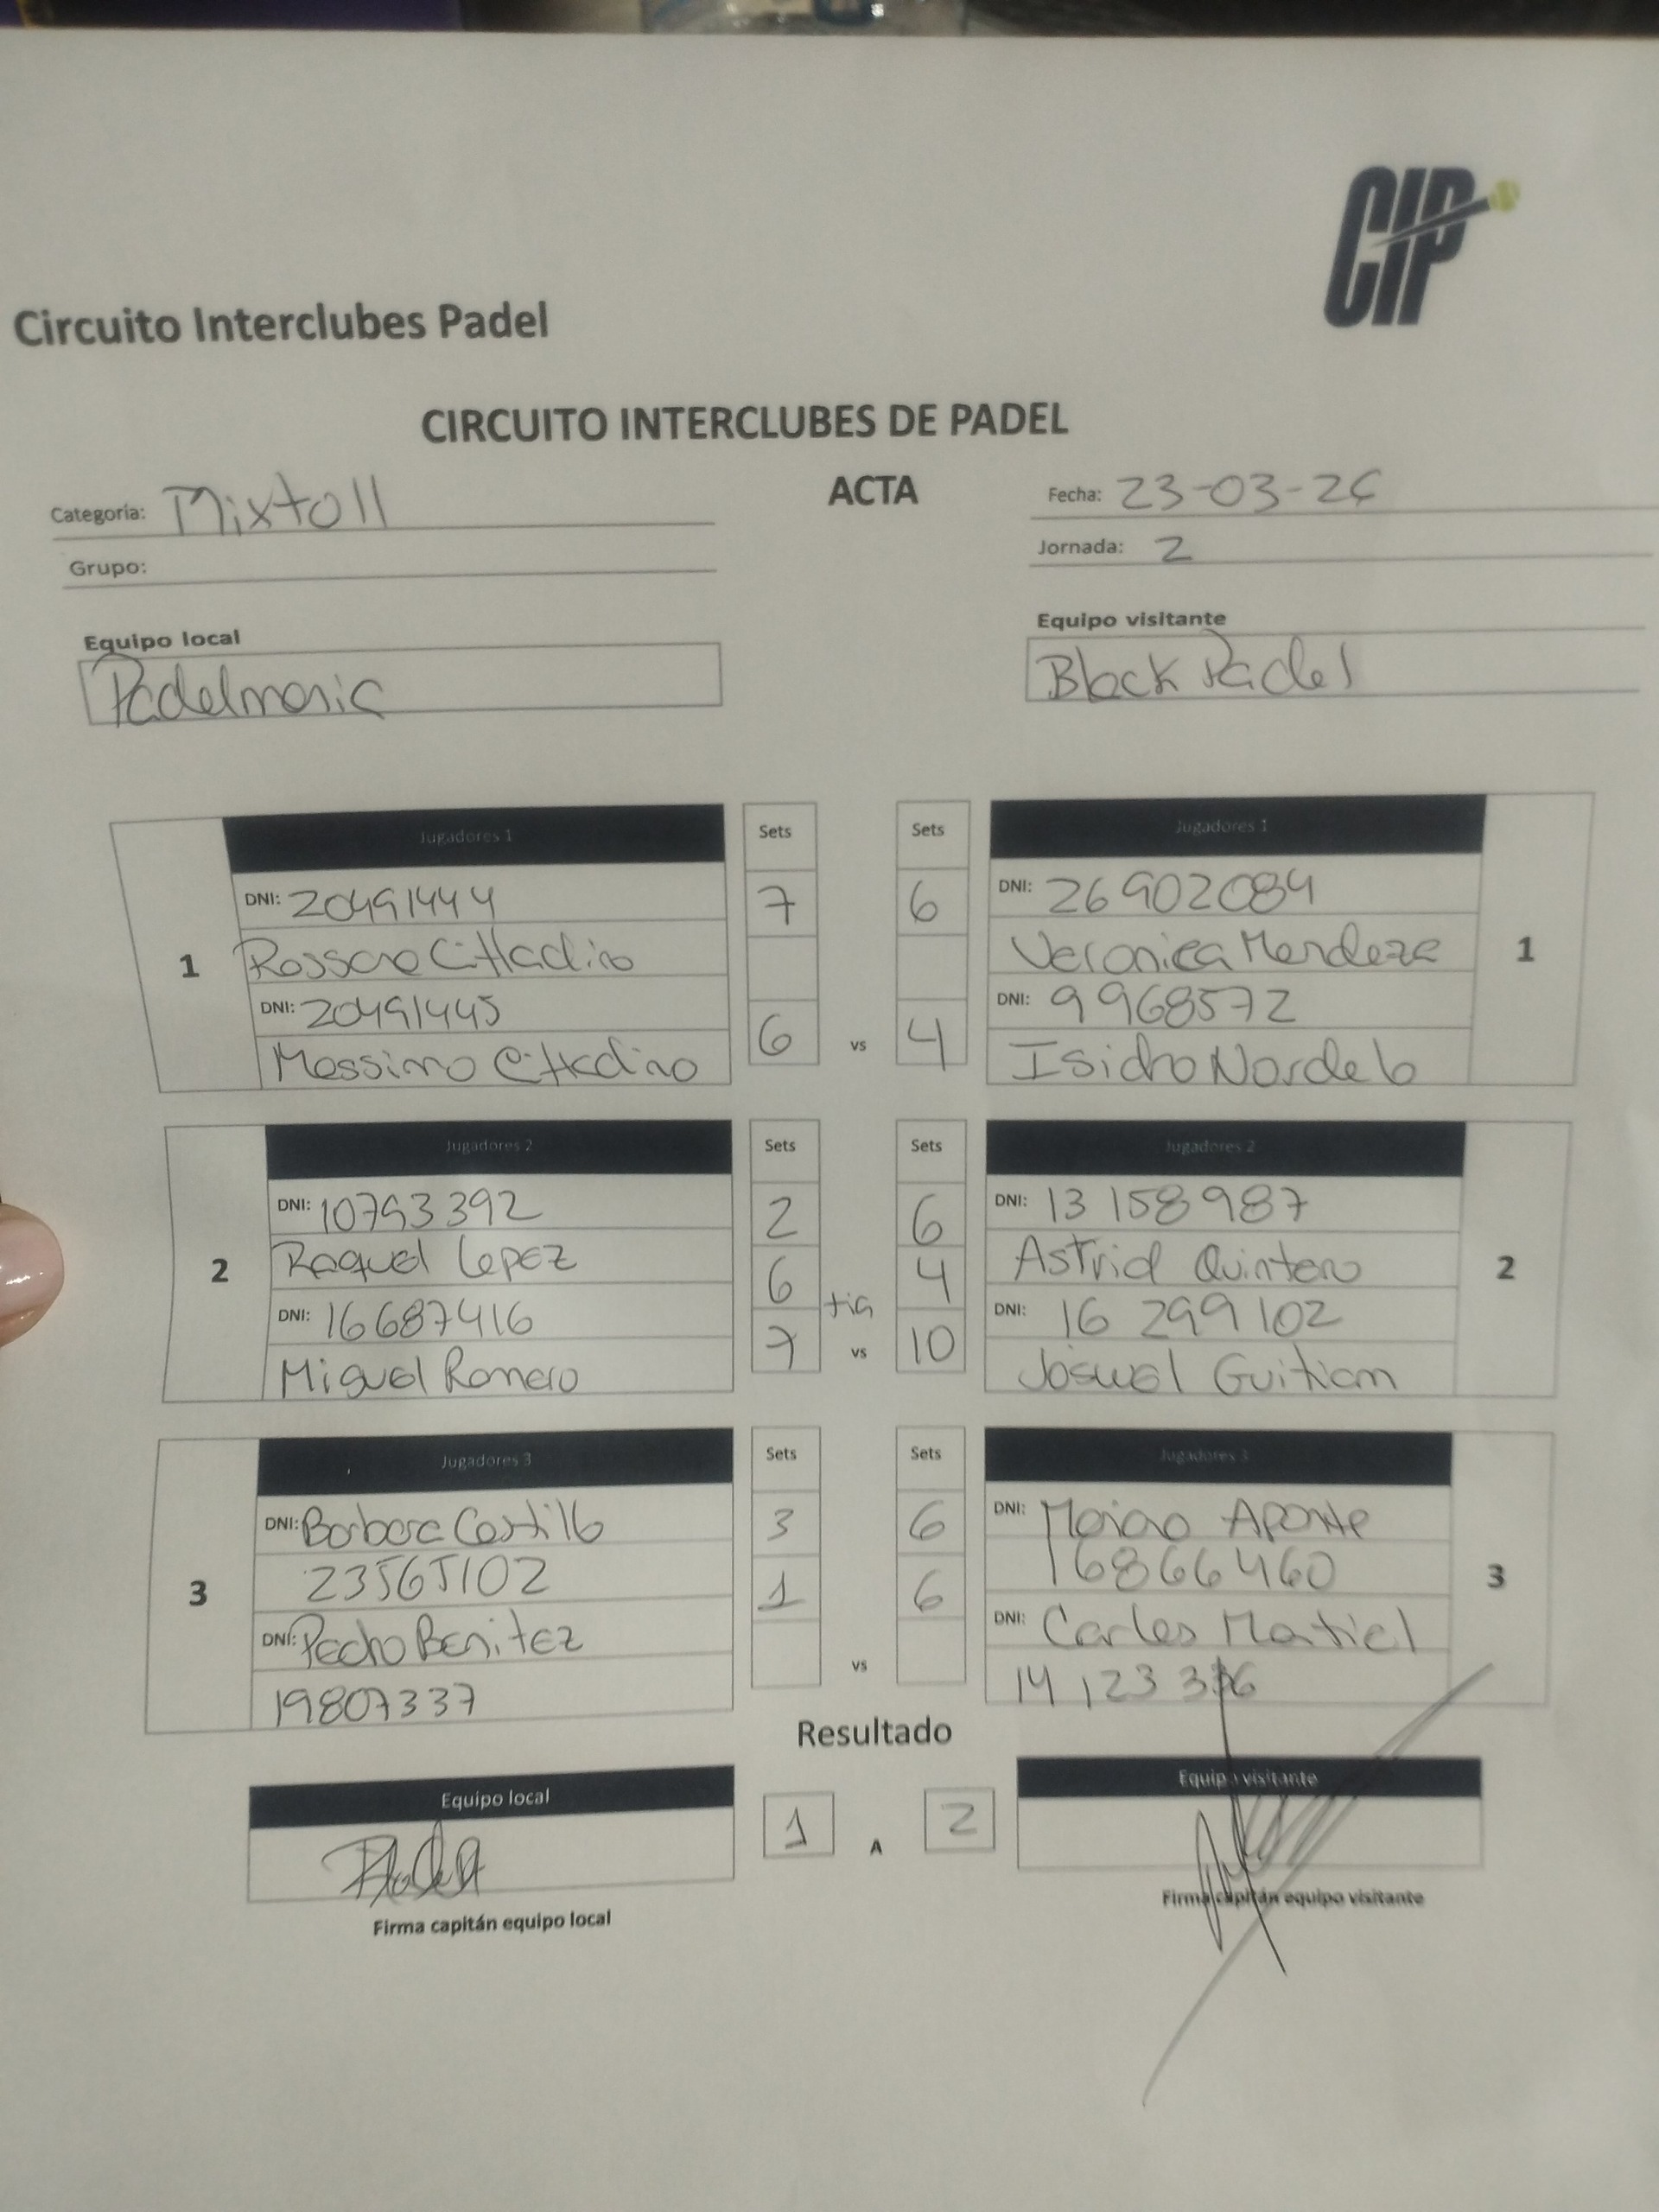 CIP
Circuito Interclubes Padel
CIRCUITO INTERCLUBES DE PADEL
ACTA
Categoría: Mixto II
Fecha: 23-03-26
Grupo:
Jornada: 2
Equipo local
Equipo visitante
Padelmania
Black Padel
Jugadores 1
Sets
Sets
Jugadores 1
DNI: 20491444
7
6
DNI: 26902084
1
Rossana Cittadino
Veronica Mendeza
1
DNI: 20491445
DNI: 9968572
Massimo Cittadino
6
vs
4
Isidro
Jugadores 2
Sets
Sets
Jugadores 2
DNI: 10793392
2
6
DNI: 13158987
2
Raquel Lopez
6
4
Astrid Quintero
2
DNI: 16687416
DNI: 16 299 102
Miguel Romero
7
vs
10
Joswel Guitian
Jugadores 3
Sets
Sets
Jugadores 3
DNI: Barbara Castillo
3
6
DNI: Aponte
3
23565102
1
6
16866460
3
DNI: Pedro Benitez
DNI: Carlos
19807337
vs
14 123
Resultado
Equipo local
1
A
2
Equipo visitante
Firma capitán equipo local
Firma capitán equipo visitante